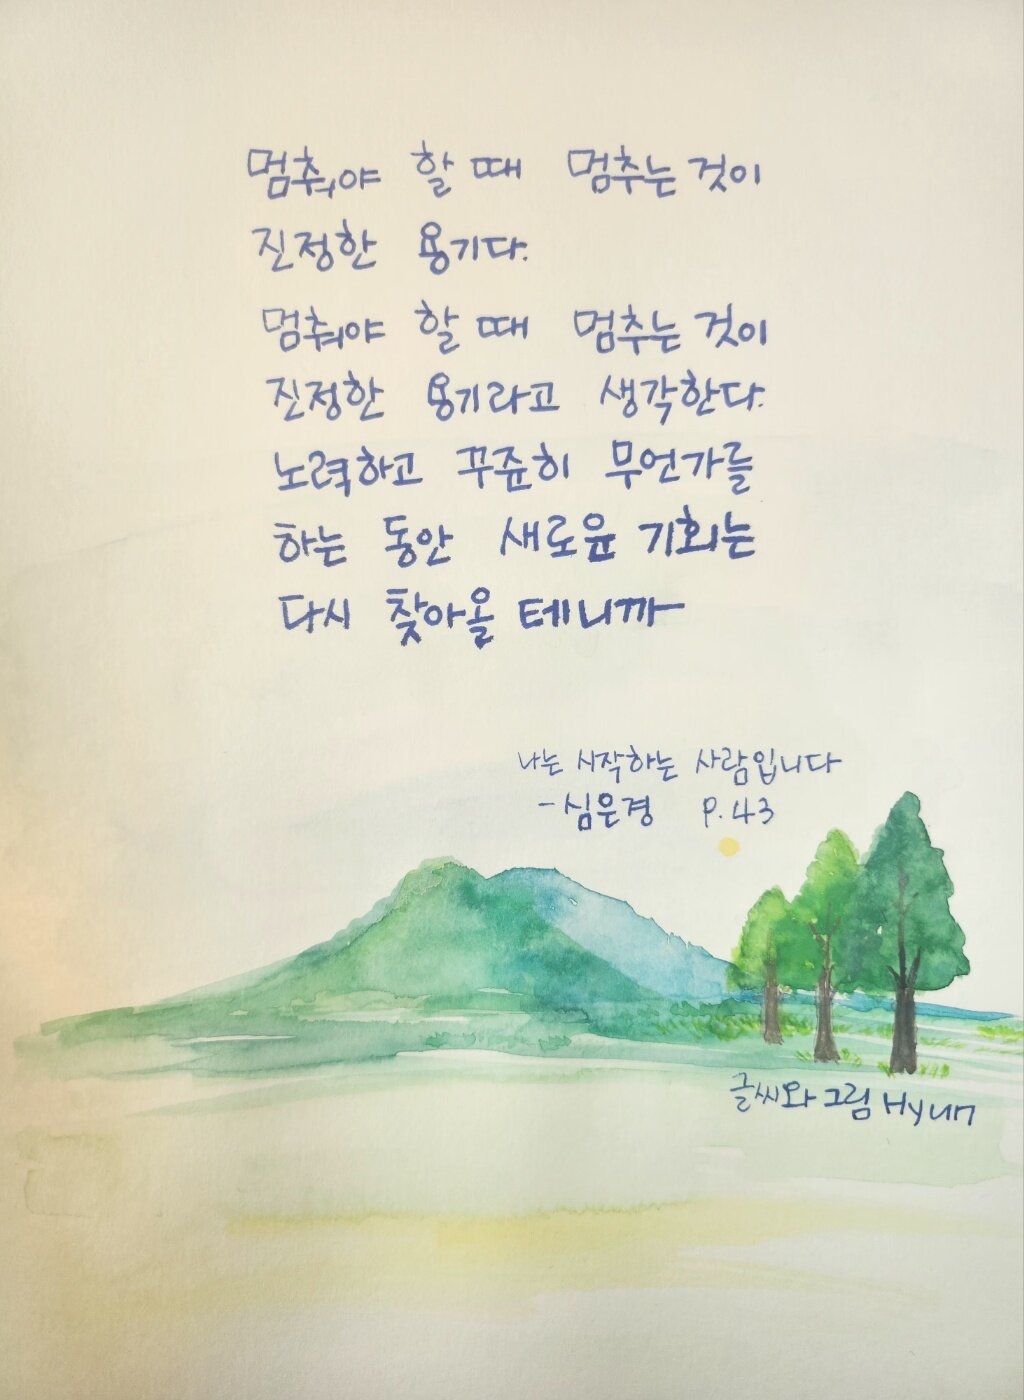 멈춰야 할 때 멈추는 것이
진정한 용기다.
멈춰야 할 때 멈추는 것이
진정한 용기라고 생각한다.
노력하고 꾸준히 무언가를
하는 동안 새로운 기회는
다시 찾아올 테니까
나는 시작하는 사람입니다
-심은경 P.43
글씨와 그림 Hyun